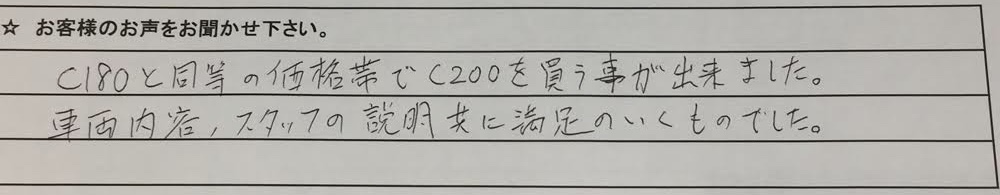 ☆ お客様のお声をお聞かせ下さい。
C180と同等の価格帯でC200を買う事が出来ました。
車両内容,スタッフの説明共に満足のいくものでした。